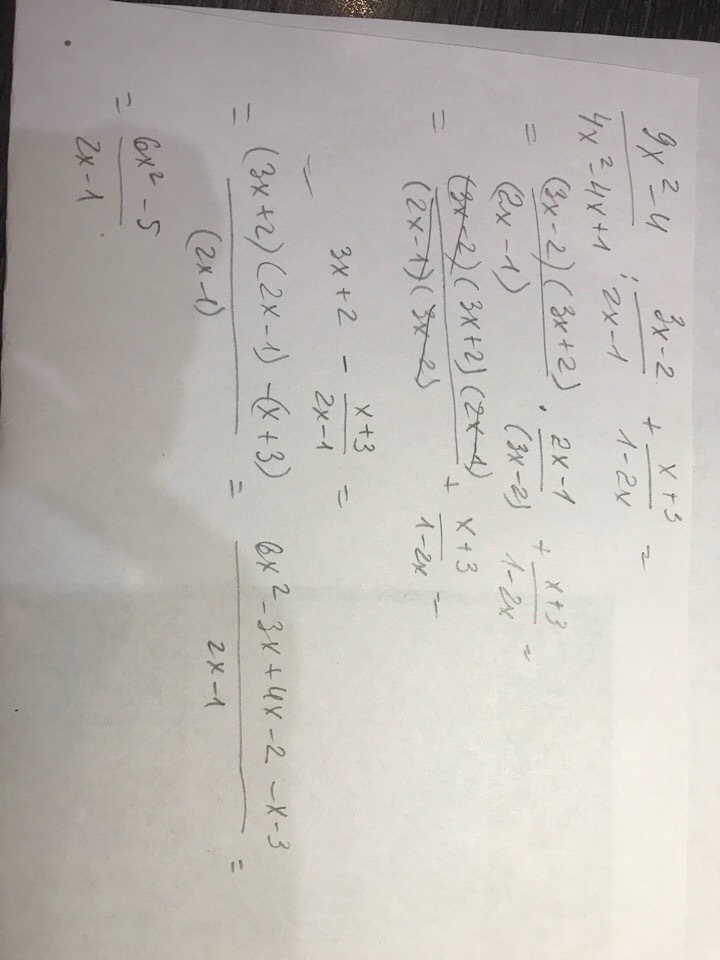 9x²-4 / 4x²-4x+1 : 3x-2 / 2x-1 + x+3 / 1-2x =
= (3x-2)(3x+2) / (2x-1) · 2x-1 / (3x-2) + x+3 / 1-2x =
= (3x-2)(3x+2)(2x-1) / (2x-1)(3x-2) + x+3 / 1-2x =
3x+2 - x+3 / 2x-1 =
= (3x+2)(2x-1)-(x+3) / (2x-1) = 6x²-3x+4x-2-x-3 / 2x-1 =
= 6x²-5 / 2x-1.